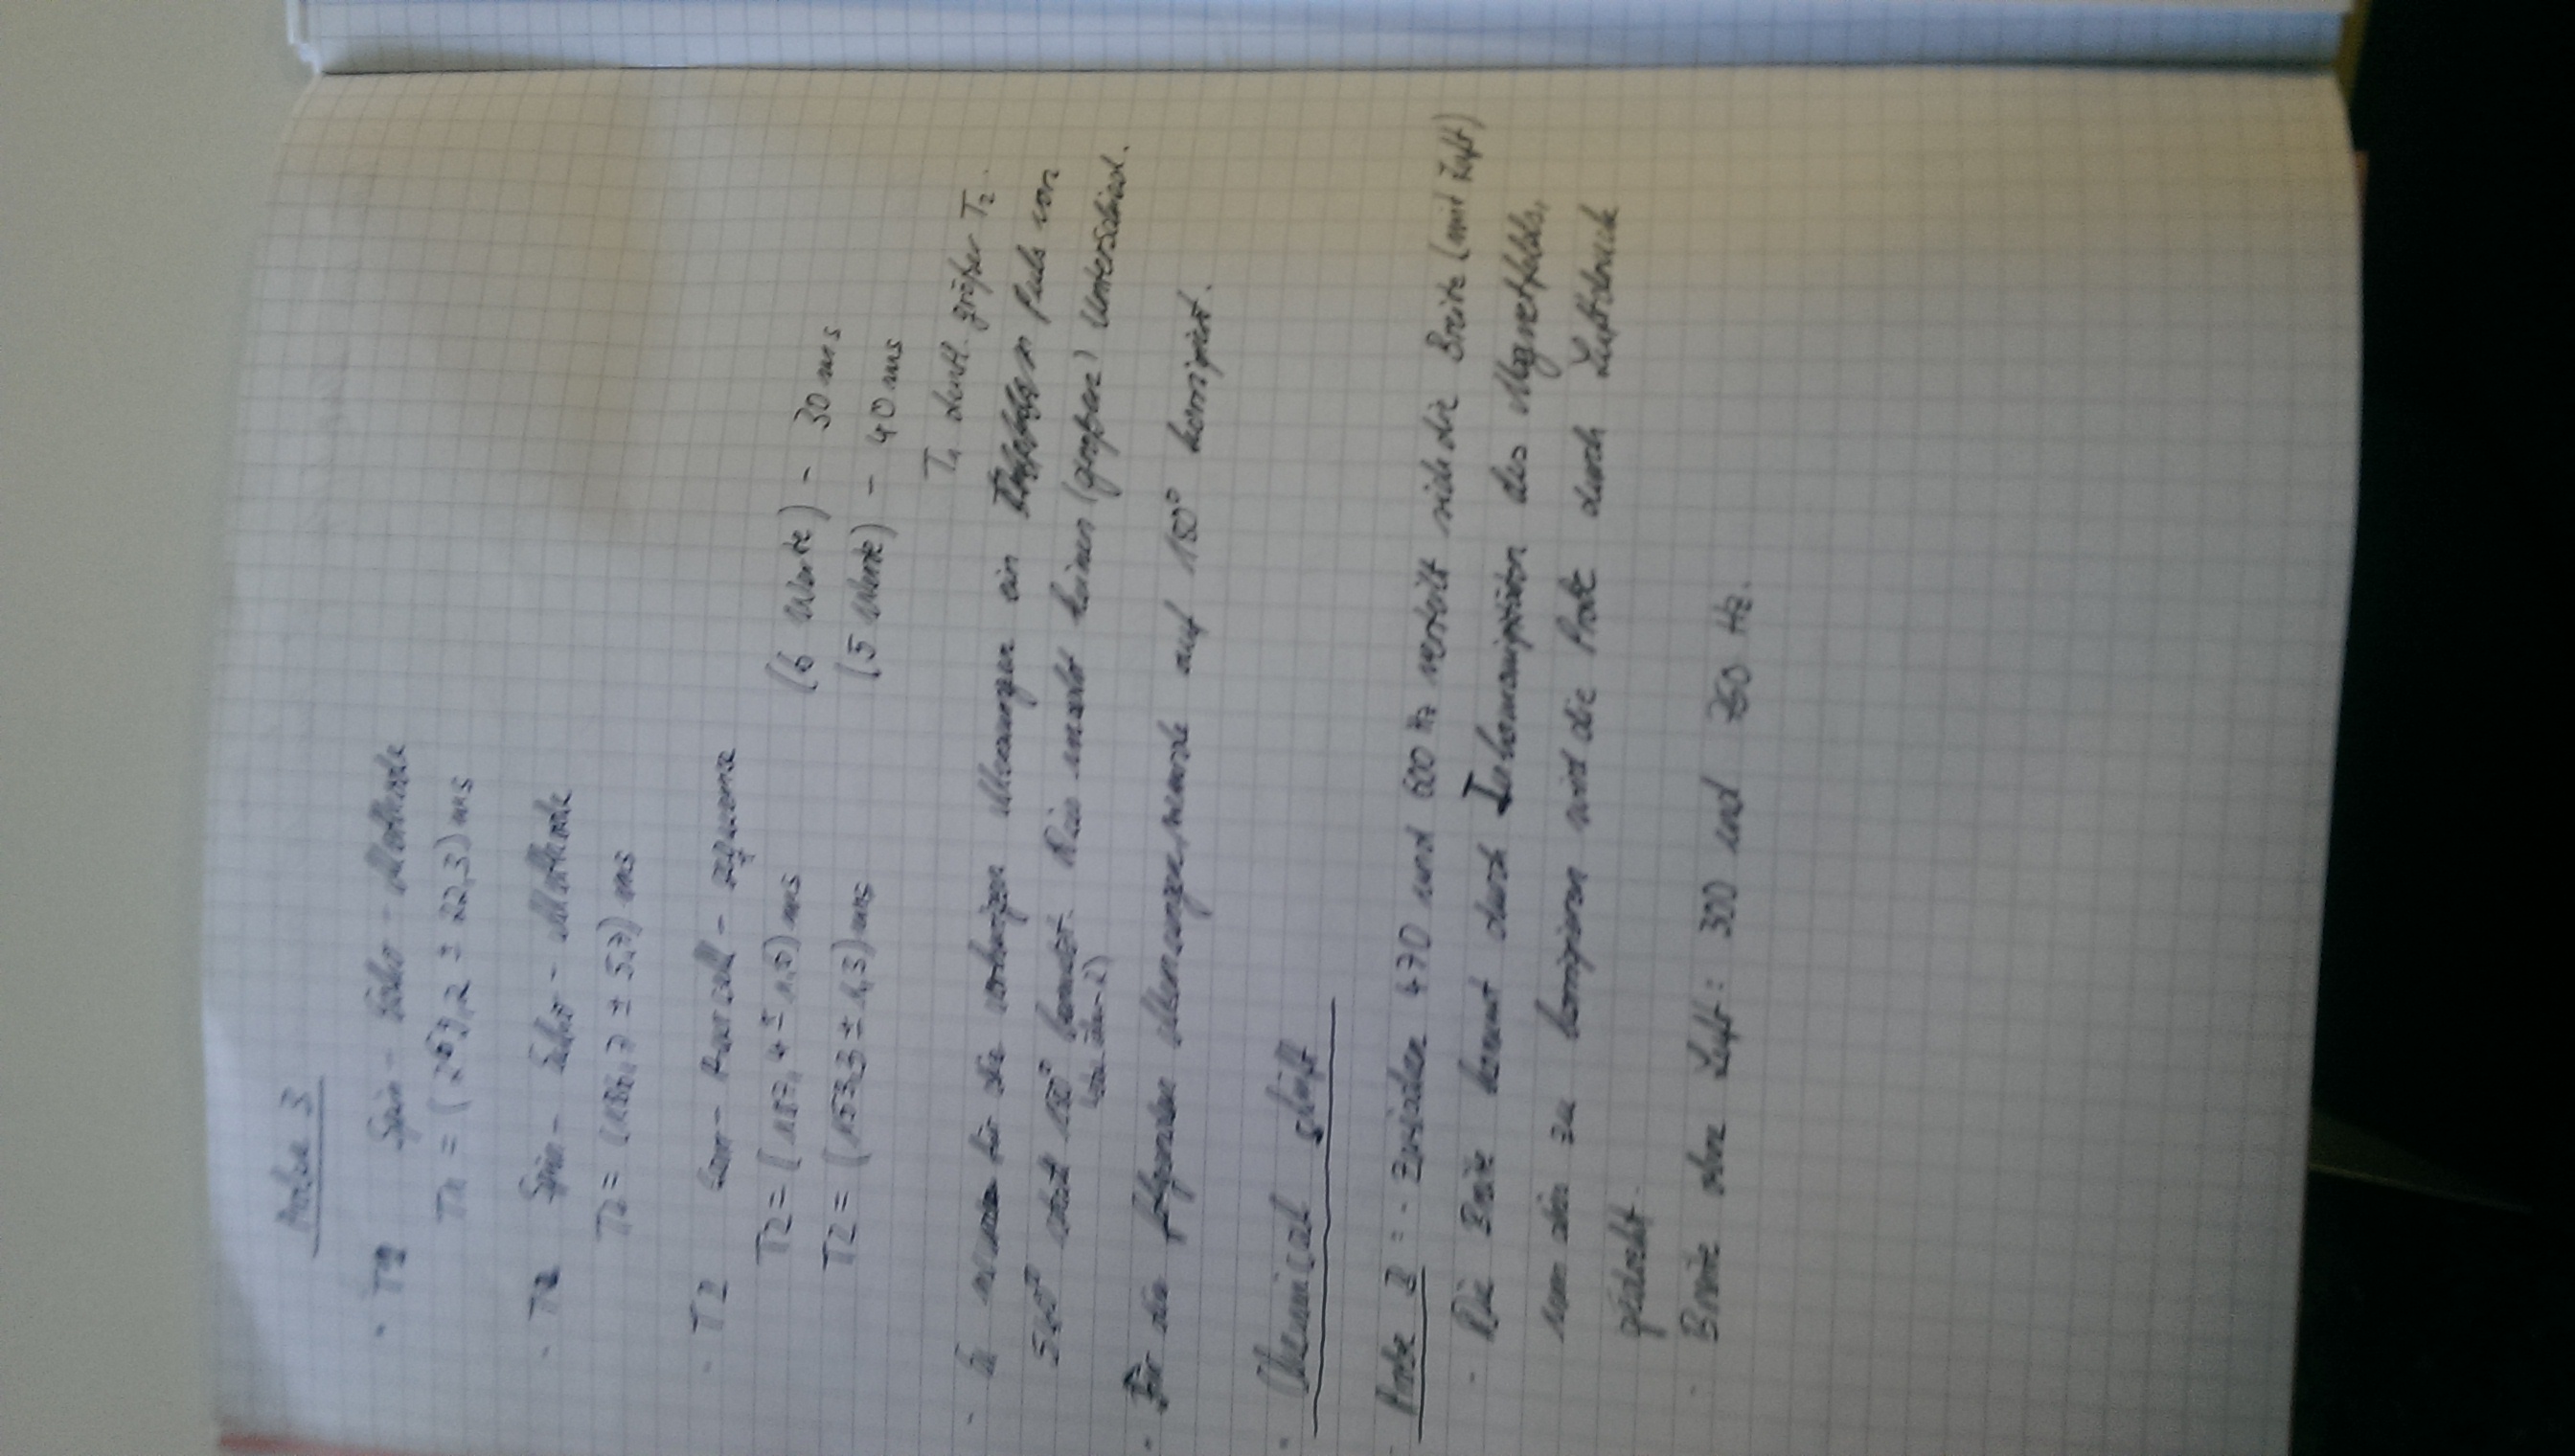 Probe 3
· T1 Spin-Echo-Methode
T1 = (263,2 ± 22,3) ms
· T2 Spin-Echo-Methode
T2 = (186,7 ± 5,7) ms
· T2 Carr-Purcell-sequenz
T2 = (157,4 ± 1,5) ms (6 Werte) - 30 ms
T2 = (153,3 ± 1,3) ms (5 Werte) - 40 ms
T1 deutl. größer T2.
· für die vorherigen Messungen ein Puls von
540° statt 180° benutzt. Dies macht keinen (großen) Unterschied.
· Für die folgenden Messungen, wurde auf 180° korrigiert.
· Chemical shift
· Probe B: - Zwischen 470 und 600 Hz verteilt sich die Breite (mit Luft)
· Die Breite kommt durch Inhomogenitäten des Magnetfelds,
um dies zu korrigieren wird die Probe durch Luftdruck
gedreht.
· Breite ohne Luft: 300 und 760 Hz.